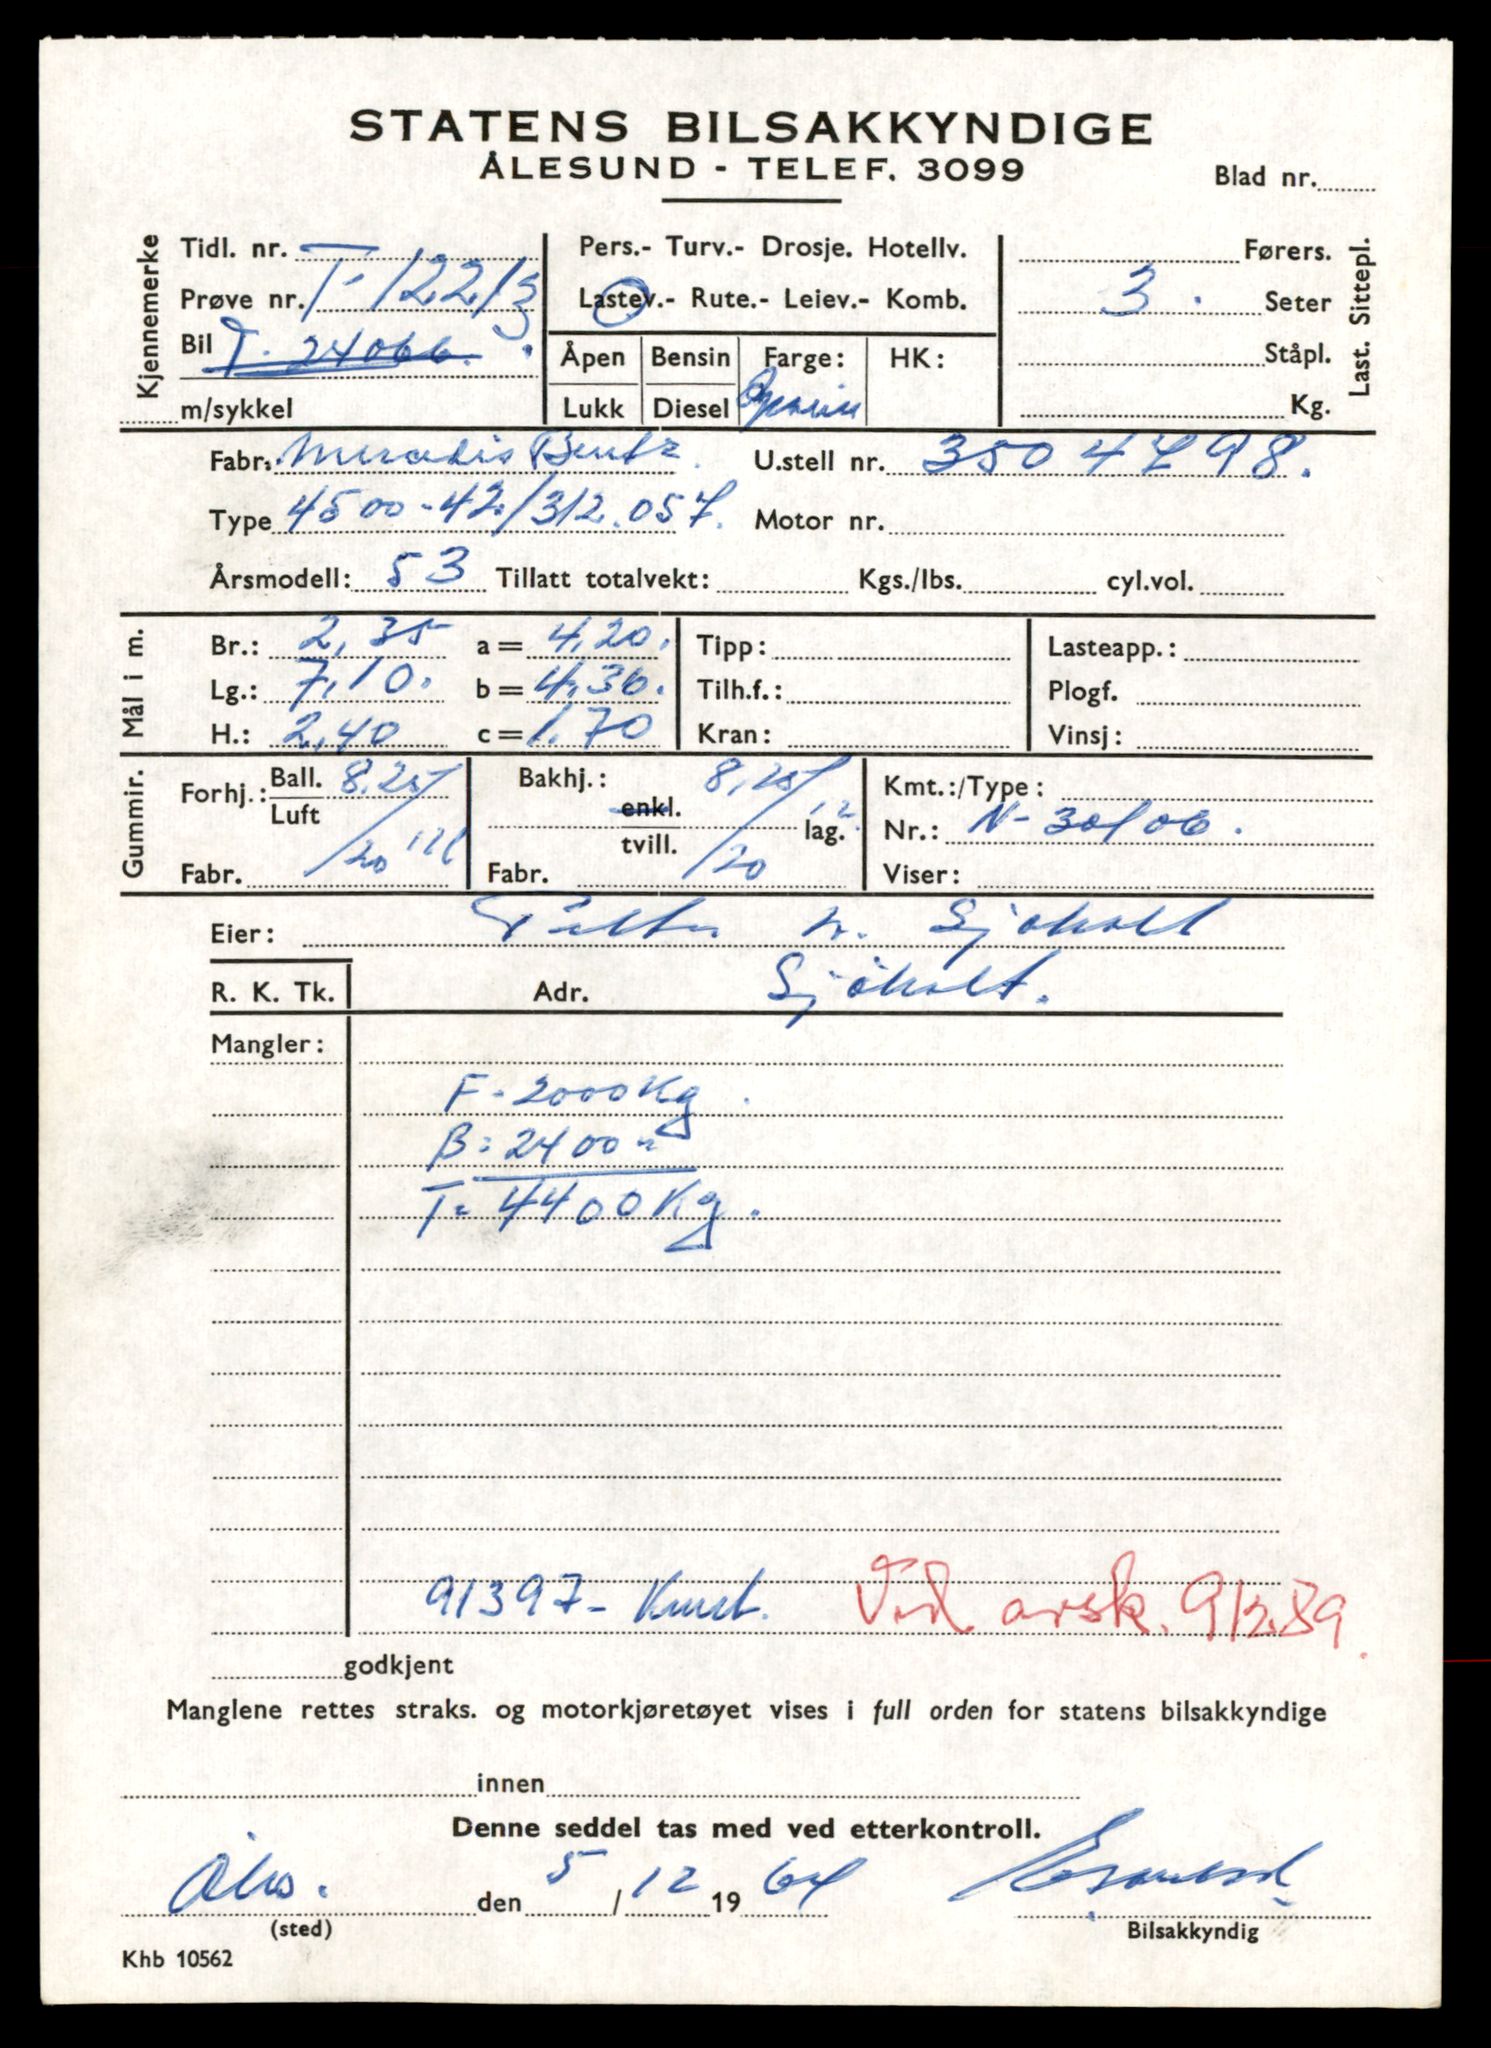 STATENS BILSAKKYNDIGE
ÅLESUND - TELEF. 3099
Blad nr.
Kjennemerke
Tidl. nr. T-12213
Prøve nr.
Bil T. 24066.
m/sykkel
Pers.- Turv.- Drosje. Hotellv.
Lastev.- Rute.- Leiev.- Komb.
Åpen Bensin Farge: HK:
Lukk Diesel
Last. Sittepl.
Førers.
3. Seter
Ståpl.
Kg.
Fabr. Mercedis Bentz. U.stell nr. 3504798.
Type 4500-42/312.057. Motor nr.
Årsmodell: 53 Tillatt totalvekt: Kgs./lbs. cyl.vol.
Mål i m.
Br.: 2,35 a = 4,20. Tipp: Lasteapp.:
Lg.: 7,10. b = 4,30. Tilh.f.: Plogf.
H.: 2,40 c = 1,70 Kran: Vinsj:
Gummir.
Forhj.: Ball. 8,25/ Bakhj.: 8,25/ Kmt.:/Type:
Luft enkl. 12 lag. Nr.: N-30106.
/20 12l tvill. /20
Fabr. Fabr. Viser:
Eier: Petter N. Sjøholt
R. K. Tk. Adr. Sjøholt.
Mangler:
F-2000Kg.
B=2400 "
T=4400Kg.
91397- Kmt. Ved avsk. 9/2.89.
godkjent
Manglene rettes straks. og motorkjøretøyet vises i full orden for statens bilsakkyndige
innen
Denne seddel tas med ved etterkontroll.
den 5/12 1964
(sted) Bilsakkyndig
Khb 10562